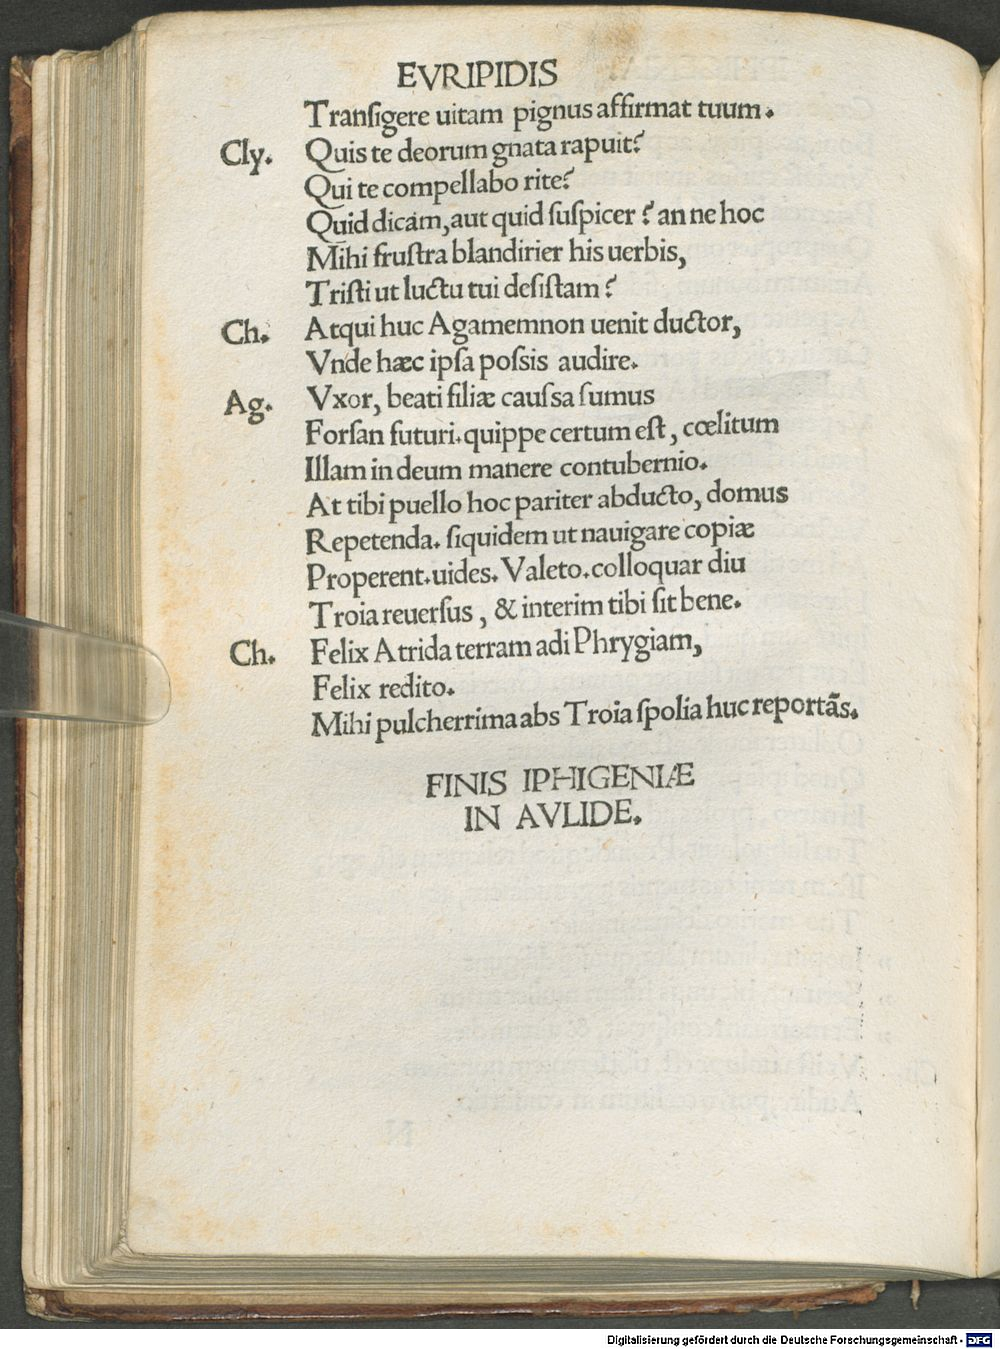 EVRIPIDIS
Tranſigere uitam pignus affirmat tuum.
Cly. Quis te deorum gnata rapuit?
Qui te compellabo rite?
Quid dicam, aut quid ſuſpicer? an ne hoc
Mihi fruſtra blandirier his uerbis,
Triſti ut luctu tui deſiſtam?
Ch. Atqui huc Agamemnon uenit ductor,
Vnde hæc ipſa poſsis audire.
Ag. Vxor, beati filiæ cauſsa ſumus
Forſan futuri. quippe certum eſt, cœlitum
Illam in deum manere contubernio.
At tibi puello hoc pariter abducto, domus
Repetenda. ſiquidem ut nauigare copiæ
Properent. uides. Valeto. colloquar diu
Troia reuerſus, & interim tibi ſit bene.
Ch. Felix Atrida terram adi Phrygiam,
Felix redito.
Mihi pulcherrima abs Troia ſpolia huc reportãs.
FINIS IPHIGENIÆ
IN AVLIDE.
Digitalisierung gefördert durch die Deutsche Forschungsgemeinschaft - DFG